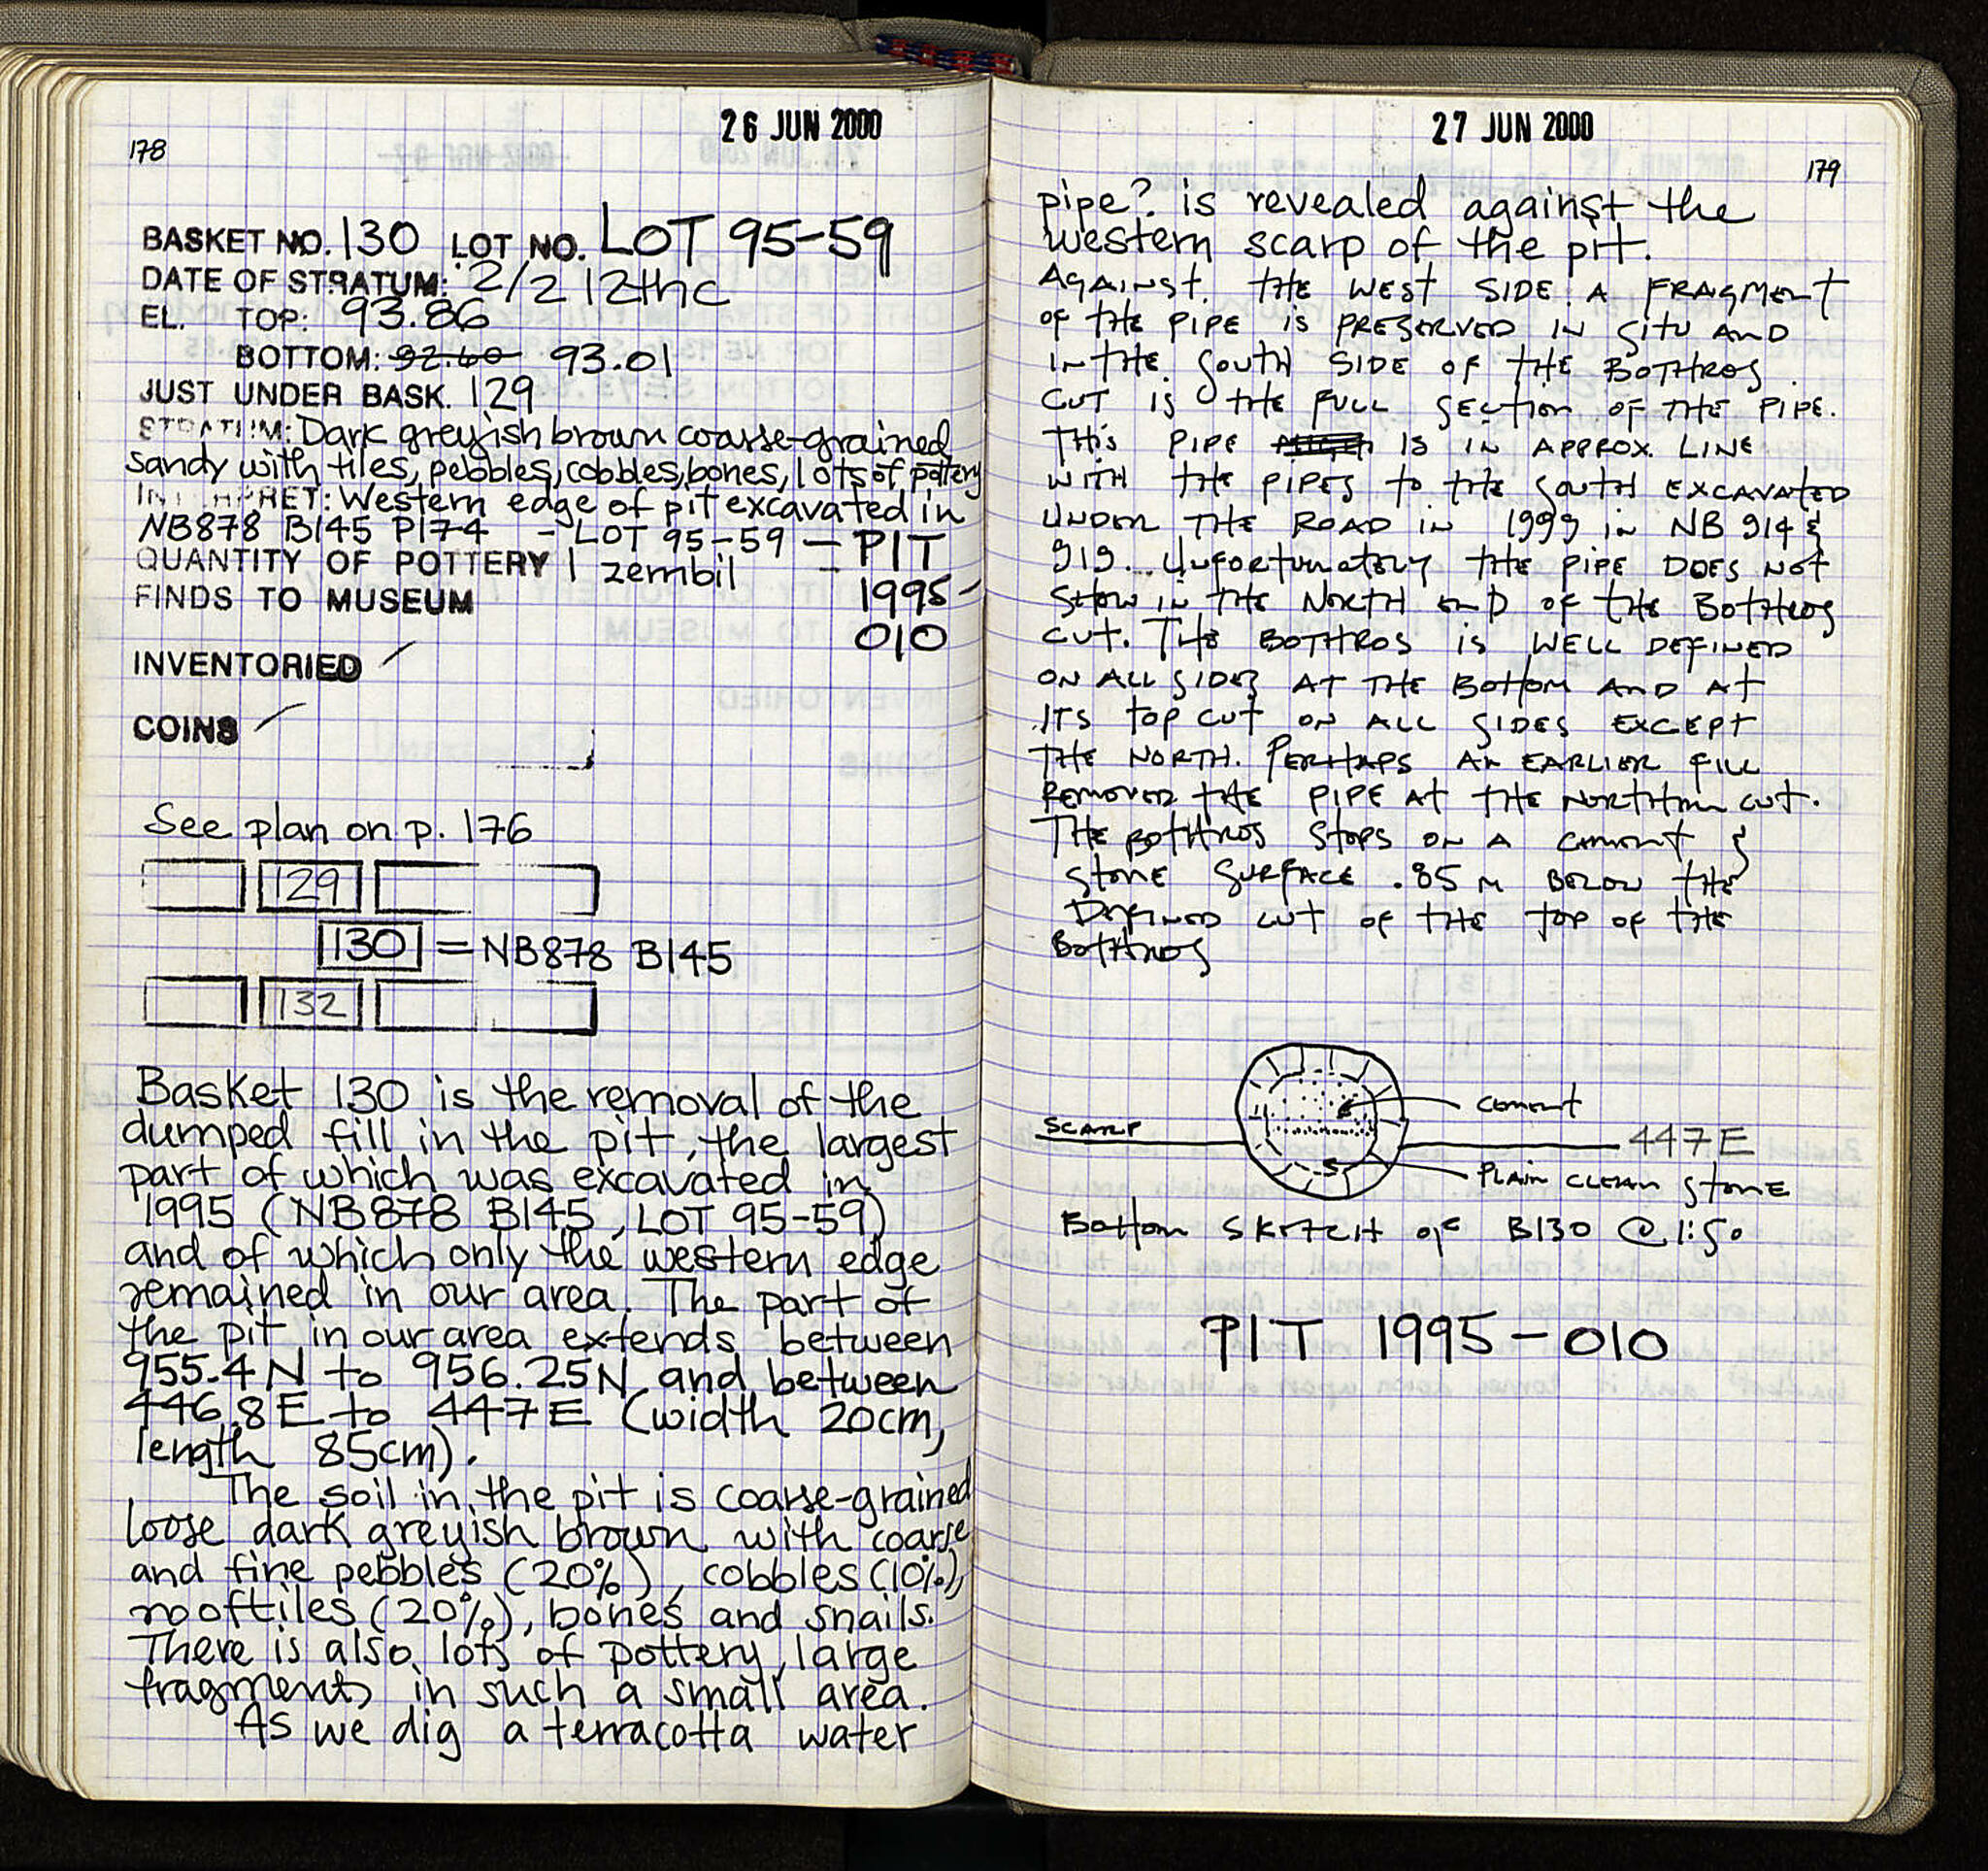 26 JUN 2000
178
BASKET NO. 130 LOT NO. LOT 95-59
DATE OF STRATUM: 2/2 12th c
EL. TOP: 93.86
BOTTOM: 92.60 93.01
JUST UNDER BASK. 129
STRATUM: Dark greyish brown coarse-grained
sandy with tiles, pebbles, cobbles, bones, lots of pottery
INTERPRET: Western edge of pit excavated in
NB878 B145 P174 - LOT 95-59 - PIT
QUANTITY OF POTTERY 1 zembil 1995-
FINDS TO MUSEUM 010
INVENTORIED
COINS
See plan on p. 176
129
130 = NB878 B145
132
Basket 130 is the removal of the
dumped fill in the pit, the largest
part of which was excavated in
1995 (NB878 B145, LOT 95-59)
and of which only the western edge
remained in our area. The part of
the pit in our area extends between
955.4N to 956.25N and between
446.8E to 447E (width 20cm,
length 85cm).
The soil in the pit is coarse-grained
loose dark greyish brown with coarse
and fine pebbles (20%), cobbles (10%),
rooftiles (20%), bones and snails.
There is also lots of pottery, large
fragments in such a small area.
As we dig a terracotta water
27 JUN 2000
179
pipe? is revealed against the
western scarp of the pit.
AGAINST THE WEST SIDE A FRAGMENT
OF THE PIPE IS PRESERVED IN SITU AND
IN THE SOUTH SIDE OF THE BOTHROS
CUT IS THE FULL SECTION OF THE PIPE.
THIS PIPE IS IN APPROX. LINE
WITH THE PIPES TO THE SOUTH EXCAVATED
UNDER THE ROAD IN 1999 IN NB 914 &
919. UNFORTUNATELY THE PIPE DOES NOT
SHOW IN THE NORTH END OF THE BOTHROS
CUT. THE BOTHROS IS WELL DEFINED
ON ALL SIDES AT THE BOTTOM AND AT
ITS TOP CUT ON ALL SIDES EXCEPT
THE NORTH. PERHAPS AN EARLIER FILL
REMOVED THE PIPE AT THE NORTHERN CUT.
THE BOTHROS STOPS ON A CEMENT &
STONE SURFACE .85 M BELOW THE
DEFINED CUT OF THE TOP OF THE
BOTHROS
CEMENT
SCARP
447E
PLAIN CLEAN STONE
BOTTOM SKETCH OF B130 @ 1:50
PIT 1995-010